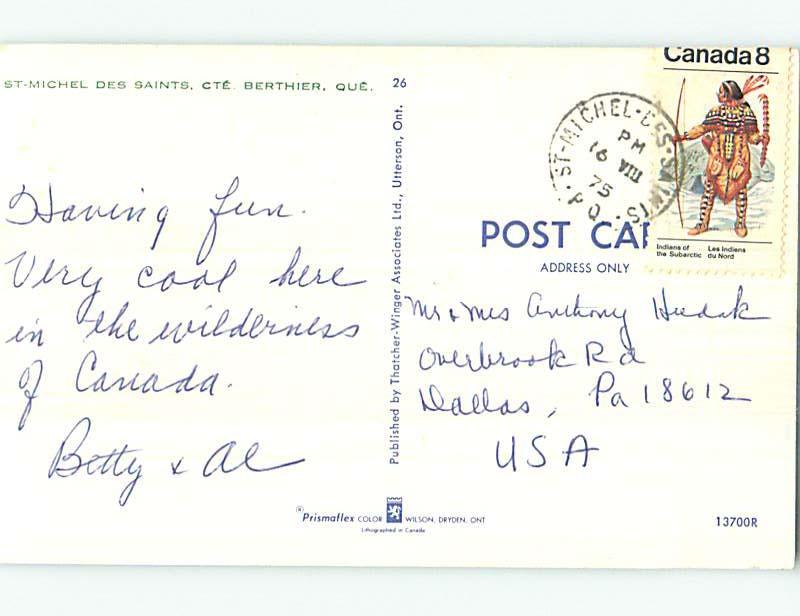 ST-MICHEL DES SAINTS, CTÉ. BERTHIER, QUÉ.
26
Having fun.
Very cool here
in the wilderness
of Canada.
Betty & Al
Published by Thatcher-Winger Associates Ltd., Utterson, Ont.
Canada 8
ST-MICHEL-DES-SAINTS
PM
16 VIII
75
P.Q.
Indians of
the Subarctic
Les Indiens
du Nord
POST CAR
ADDRESS ONLY
Mr & Mrs Anthony Hudak
Overbrook Rd
Dallas, Pa 18612
USA
® Prismaflex COLOR WILSON, DRYDEN, ONT
Lithographed in Canada
13700R